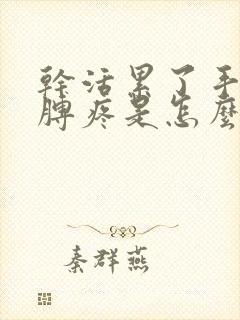 幹活累了手
脾疼是怎麼
秦群燕